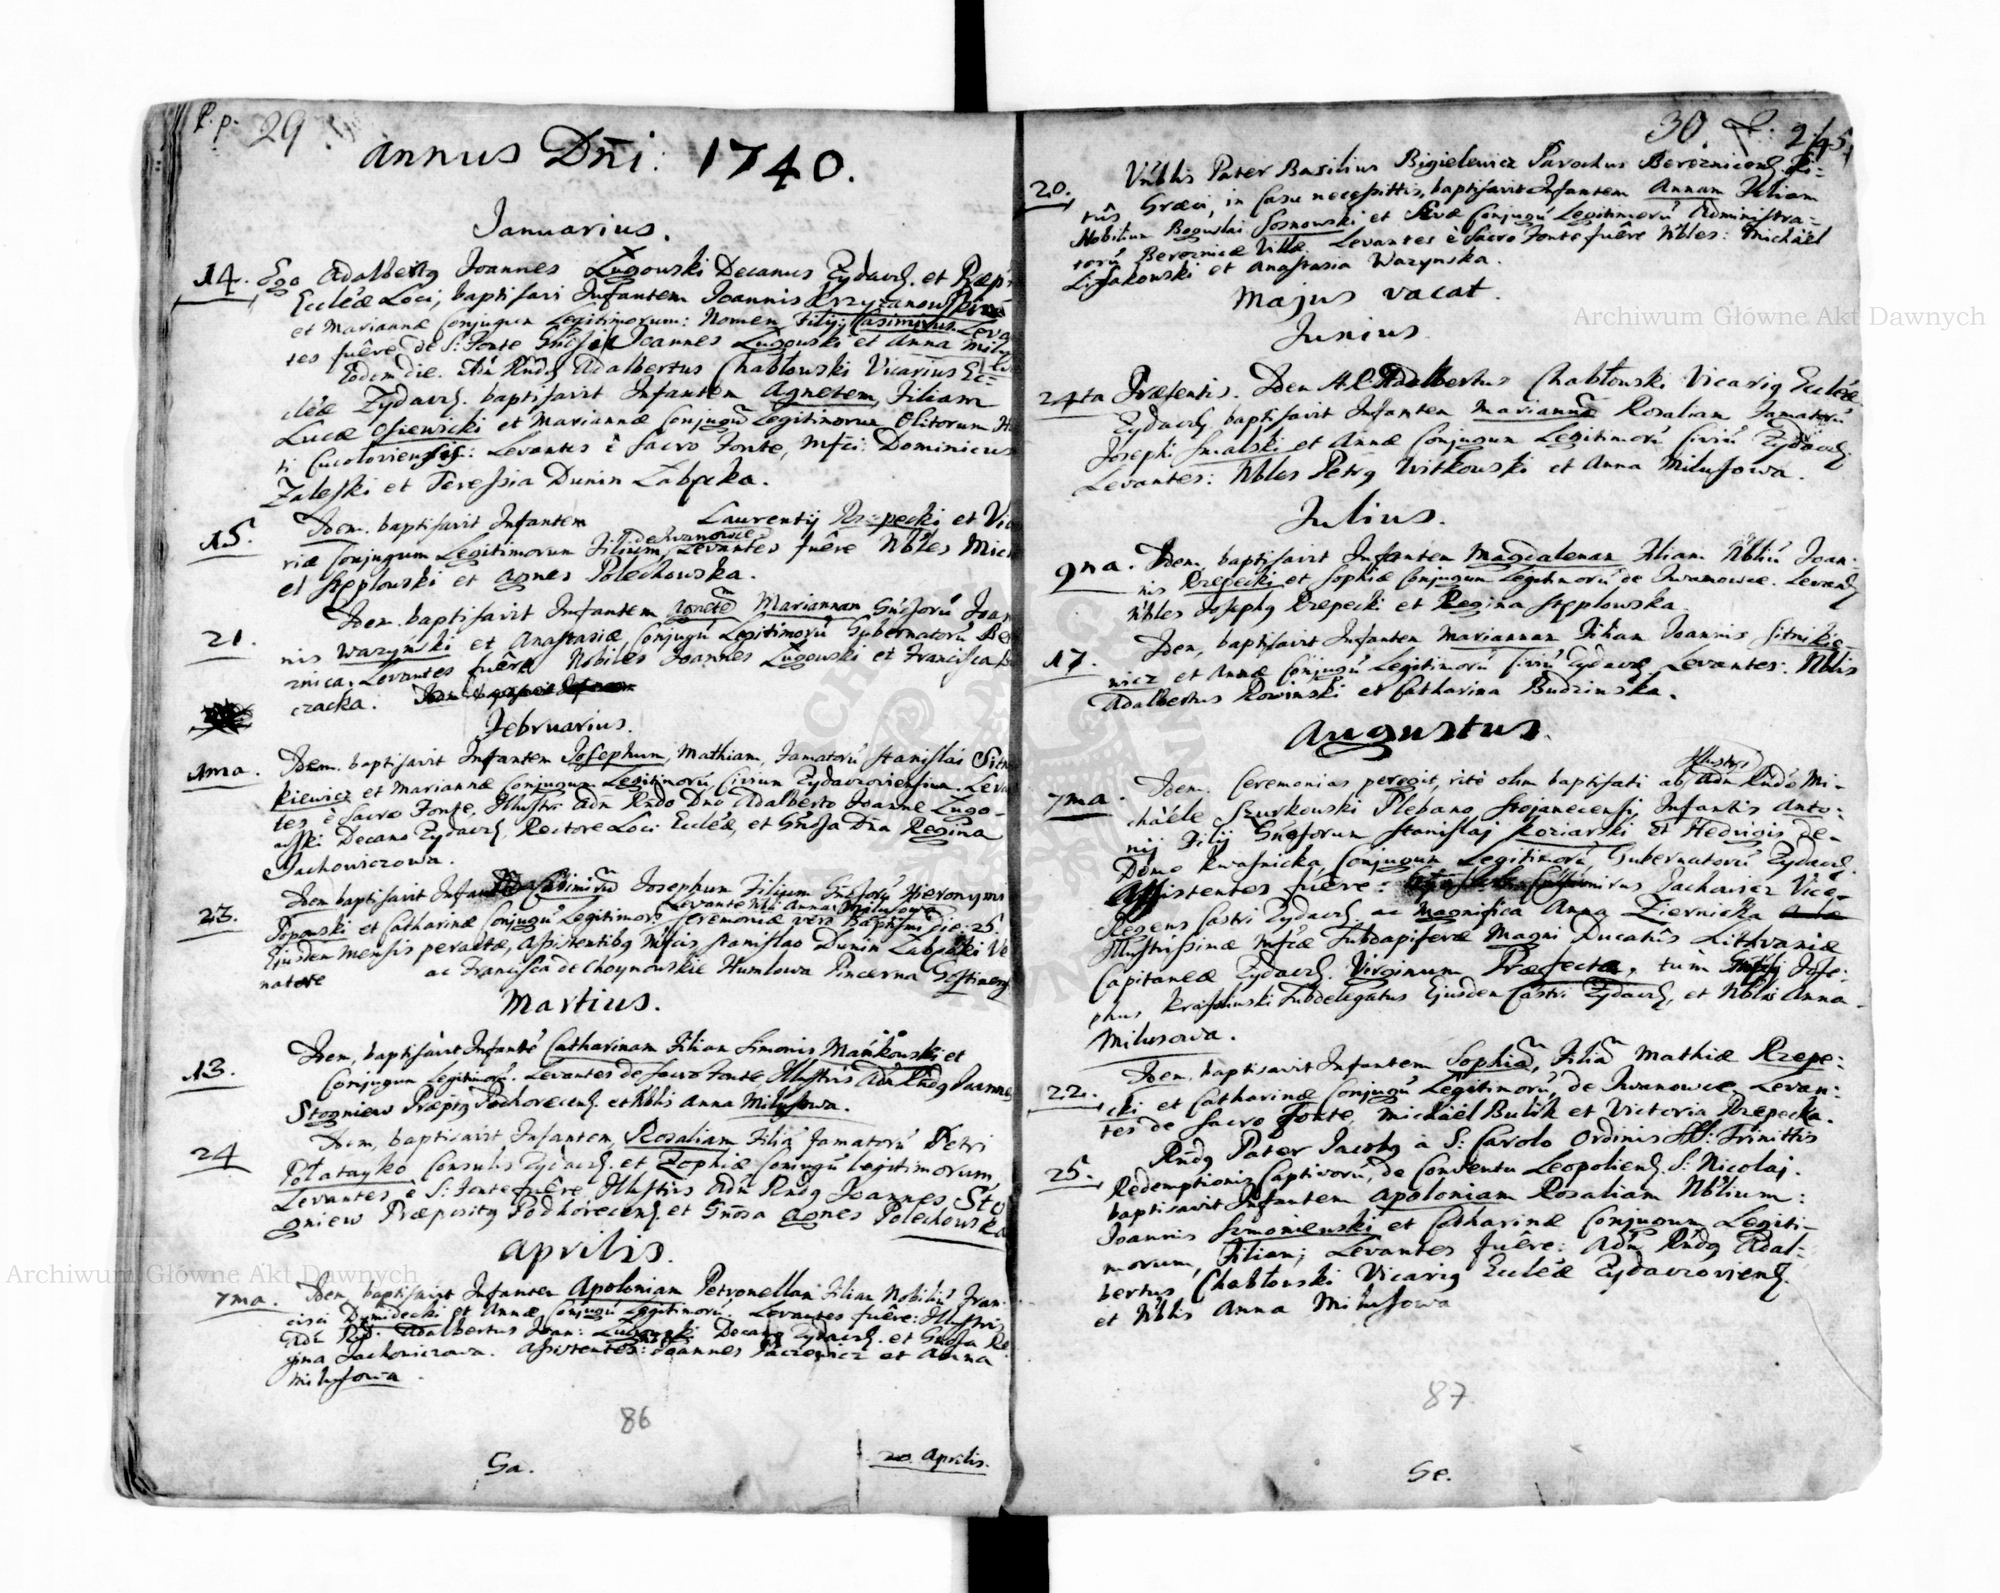 P. p. 29
Annus Dni: 1740.
Januarius.
14. Ego Adalbertg Joannes Lugowski Decanus Zydacz. et Præp:
Ecclæ Loci, baptisavi Infantem Joannis Krzyzanowski
et Mariannæ Conjugum Legitimorum: Nomen Filij Casimirus. Levan
tes fuêre de S: Fonte Joannes Lugowski et Anna Milu
Eodem die. Adn Rndg Adalbertus Chabłowski Vicarius Ec:
cleæ Zydacz. baptisavit Infantem Agnetem, Filiam
Lucæ Osiewski et Mariannæ Conjugu Legitimorum Olitorum
ti Cucoloviensis: Levantes è Sacro Fonte, Mfci: Dominicus
Zaleski et Teressia Dunin Ząbcka.
15. Idem. baptisavit Infantem Laurentij Rzepecki et Vic
de Iwanowce
riæ Conjugum Legitimorum Filium Levantes fuêre Nbles Mich
et Stęplowski et Agnes Polechowska.
21. Idem. baptisavit Infantem Agnetem Mariannam Gnsforu Joan
nis Warzynski et Anastasiæ, Conjugu Legitimoru Gubernatoru Be
znica. Levantes fuêre Nobiles Joannes Lugowski et Francisca
czacka.
Februarius.
1ma. Idem. baptisavit Infantem Josephum, Mathiam, Famatoru Stanislai Sitni
kiewicz et Mariannæ Conjugum Legitimoru Civium Zydacoviensium. Levan
tes è Sacro Fonte, Illustri Adn Rndo Dno Adalberto Joanne Lugo-
wski Decano Zydacz, Rectore Loci Ecclæ, et Gnosa Dna Regina
Jachowiczowa.
23. Idem baptisavit Josephum Filium Gnsforu Hieronymi
Popowski et Catharinæ Conjugu Legitimor: Ceremoniæ vero Baptismi die: 25.
Ejusdem Mensis peractæ, Assistentibg Mfcis Stanislao Dunin Ząbcki Ve
natore ac Francisca de Choynowskie Humlowa Pincerna Gostinens
Martius.
13. Idem, baptisavit Infante Catharinam Filiam Simonis Mańkowski et
Conjugum Legitimoru. Levantes de Sacro Fonte, Illustris Adn Rndg Joannes
Stogniew Præpsg Podhorecens. et Nblis Anna Milusowa.
24 Idem, baptisavit Infantem, Rosaliam Filia Famatoru Petri
Połatayko Consulis Zydacz. et Zophiæ Coniugu legitimorum,
Levantes è S: Fonte fuêre, Illustris Adn Rndg Joannes Sto
gniew Præpositg Podhorecens. et Gnosa Agnes Polechowska
Aprilis.
7ma. Idem, baptisavit Infantem Apoloniam Petronellam Filiam Nobiliu Fran-
cisci Dzmidecki et Annæ Conjugu Legitimoru. Levantes fuêre: Illustris
Adn Rd: Adalbertus Joan: Lugowski Decang Zydacz. et Gnosa Re
gina Jachowiczowa. Assistentes: Joannes Paczewicz et Anna
Milusowa.
86
5a.
20 Aprilis.
30 245
20. Vnblis Pater Basilius Bigielewicz Parochus Bereznicens. Ri:
tûs Græci, in casu necessittis, baptisavit Infantem Annam Filiam
Nobilium Boguslai Sosnowski et Evæ Conjugu Legitimoru Administra-
toru Bereznicæ Villæ. Levantes è Sacro Fonte fuêre Nbles: Michael
Lisakowski et Anastasia Warzynska.
Majus vacat.
Junius.
24ta Præsentis. Idem A.R. Adalbertus Chabłowski Vicarig Ecclæ
Zydacz. baptisavit Infantem Mariannæ Rosaliam Famatoru
Josephi Smalski et Annæ Conjugum Legitimoru Civiu Zydacz.
Levantes: Nbles Petrg Witkowski et Anna Milusowa.
Julius.
9na. Idem, baptisavit Infantem Magdalenam Filiam Nbliu Joan-
nis Rzepecki et Sophiæ Conjugum Legitimoru de Iwanowce. Levans
Nbles Josephg Rzepecki et Regina Stęplowska.
17. Idem, baptisavit Infantem Mariannam Filiam Joannis Sitnikie-
wicz et Annæ Conjugu Legitimoru Civiu Zydacz. Levantes: Nblis
Adalbertus Rowinski et Catharina Budzinska.
Augustus.
Illustri
7ma. Idem. Ceremonias peregit, ritè olim baptisati ab Adn Rndo Mi-
chàéle Szurkowski Plebano Stojanecensi, Infantis Anto-
nij Filij Gnosorum Stanislaj Koziarski et Hedvigis De-
Domo Kwasnicka Conjugum Legitimoru, Gubernatoru Zydacz.
Assistentes fuêre: Casimirus Jachowicz Vice-
Regens Castri Zydacz. ac Magnifica Anna Ziernicka
Illustrissimæ Mfcæ Subdapiferæ Magni Ducatûs Lithvaniæ
Capitaneæ Zydacz. Virginum Præfecta, tùm Jose-
phus Krasinski Subdelegatus Ejusdem Castri Zydacz, et Nblis Anna
Milusowa.
22. Idem, baptisavit Infantem Sophia, Filia Mathiæ Rzepe:
cki et Catharinæ Conjugu Legitimoru, de Iwanowce. Levan:
tes de Sacro Fonte, Michäel Bulik et Victoria Rzepecka.
25. Rndg Pater Jacobg à S: Carolo Ordinis SS: Trinittis
Redemptionis Captivoru, de Conventu Leopoliens. S: Nicolaj.
baptisavit Infantem Apoloniam Rosaliam Nblium:
Joannis Szmoniewski et Catharinæ Conjugum Legiti-
morum, Filiam; Levantes fuêre: Adn Rndg Adal-
bertus Chabłowski Vicarig Ecclæ Zydaczoviens.
et Nblis Anna Milusowa
87
5e.
Archiwum Główne Akt Dawnych
Archiwum Główne Akt Dawnych